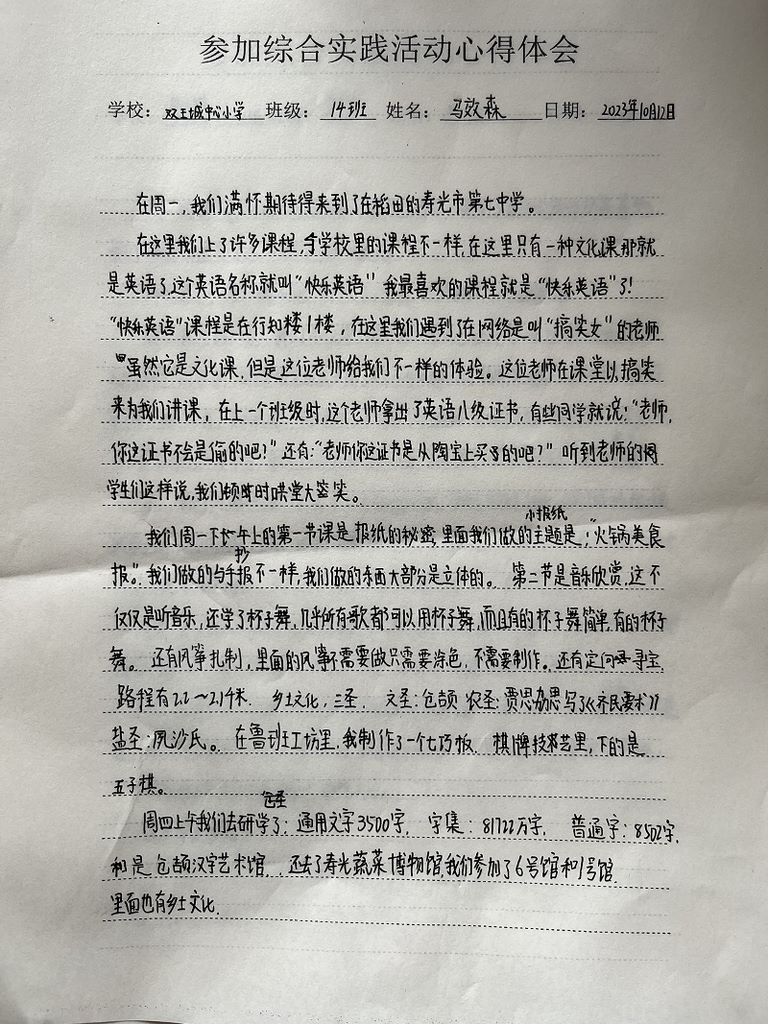 参加综合实践活动心得体会
学校：双王城中心小学 班级：14班 姓名：马效森 日期：2023年10月12日
在周一，我们满怀期待得来到了在稻田的寿光市第七中学。
在这里我们上了许多课程，与学校里的课程不一样，在这里只有一种文化课那就
是英语了，这个英语名称就叫“快乐英语”我最喜欢的课程就是“快乐英语”了！
“快乐英语”课程是在行知楼1楼，在这里我们遇到了在网络是叫“搞笑女”的老师
虽然它是文化课，但是这位老师给我们不一样的体验。这位老师在课堂以搞笑
来为我们讲课，在上一个班级时，这个老师拿出了英语八级证书，有些同学就说：“老师，
你这证书不会是偷的吧？”还有：“老师你这证书是从陶宝上买的吧？”听到老师的
学生们这样说，我们顿时哄堂大笑。
小报纸
我们周一下午上的第一节课是报纸的秘密，里面我们做的主题是：“火锅美食
抄
报”。我们做的与手报不一样，我们做的东西大部分是立体的。 第二节是音乐欣赏，这不
仅仅是听音乐，还学了杯子舞，几乎所有歌都可以用杯子舞，而且有的杯子舞简单，有的杯子
舞。还有风筝扎制，里面的风筝不需要做只需要涂色，不需要制作。还有定向寻宝
路程有2.2～2.14米. 乡土文化，三圣. 文圣：仓颉 农圣：贾思勰思写了《齐民要术》
盐圣：夙沙氏。 在鲁班工坊里，我制作了一个七巧板. 棋牌技艺里，下的是
五子棋。
仓圣
周四上午我们去研学了：通用文字3500字， 字集：81722万字， 普通字：8502字，
和是仓颉汉字艺术馆. 还去了寿光蔬菜博物馆，我们参加了6号馆和1号馆.
里面也有乡土文化.